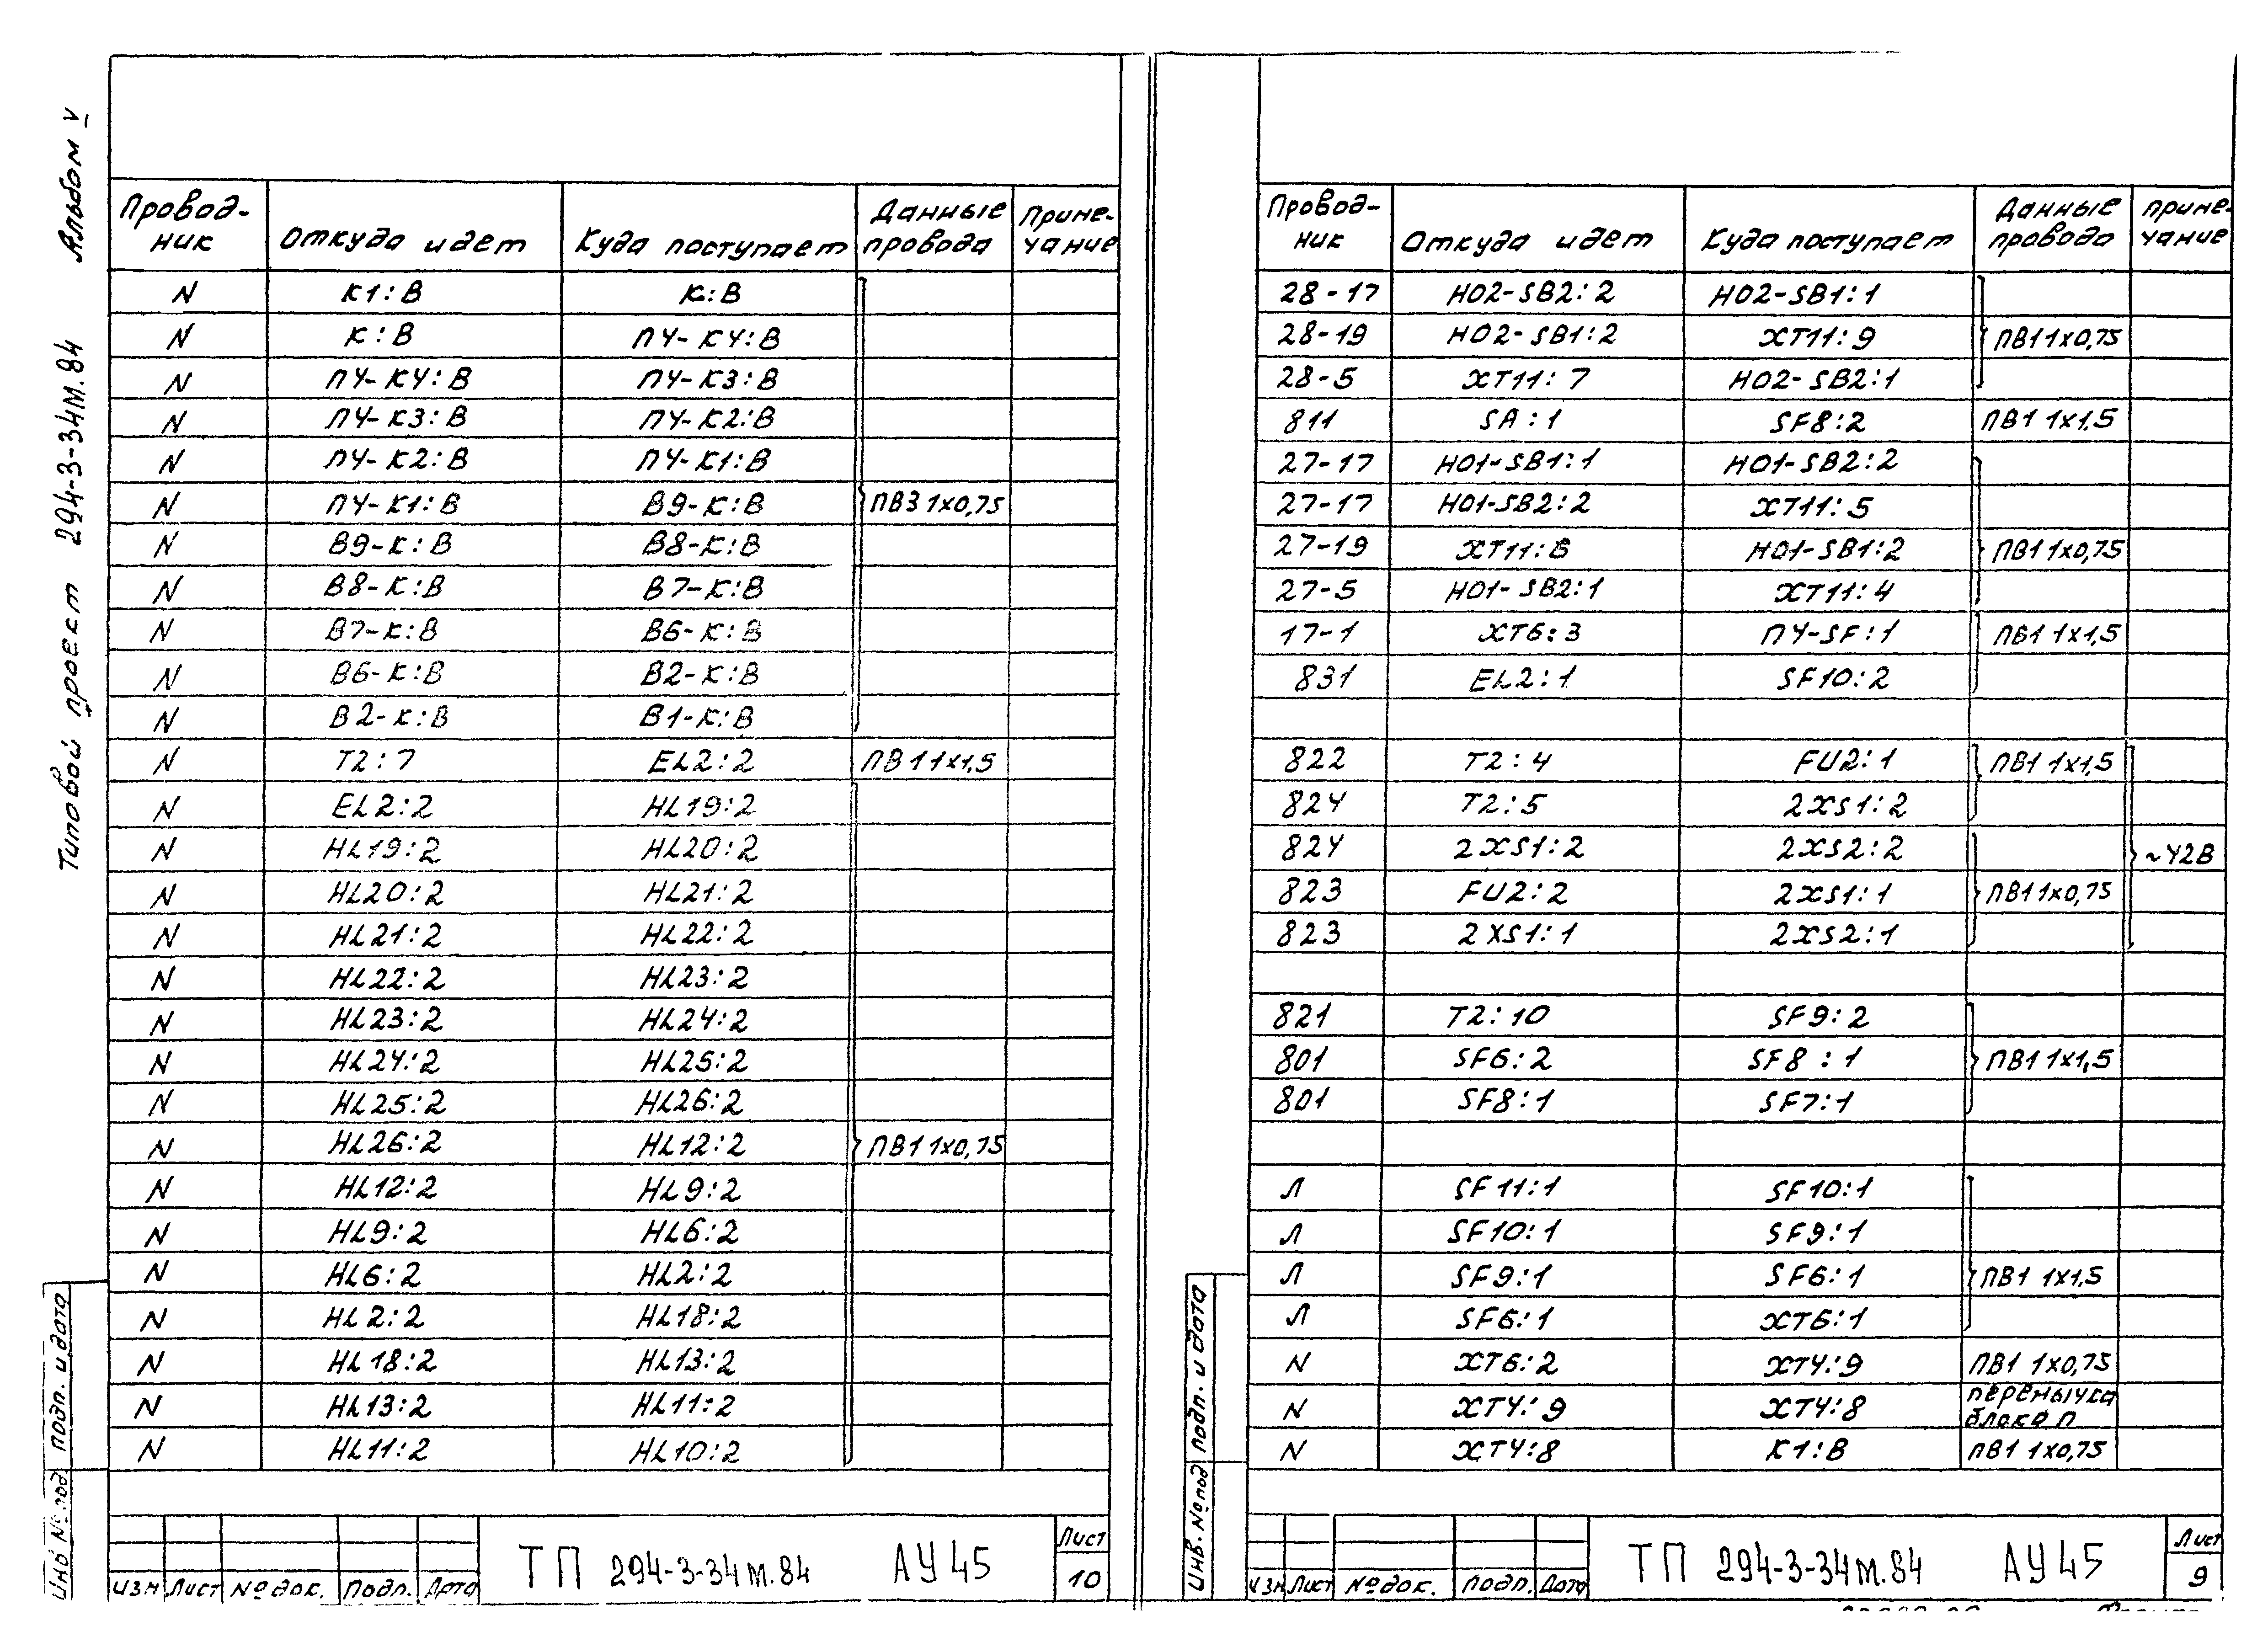 Типовой проект 294-3-34м.84 Альбом V
Провод-ник Откуда идет Куда поступает Данные провода Приме-чание
N К1:В К:В
N К:В ПУ-КУ:В
N ПУ-КУ:В ПУ-К3:В
N ПУ-К3:В ПУ-К2:В
N ПУ-К2:В ПУ-К1:В
N ПУ-К1:В В9-К:В ПВ3 1х0,75
N В9-К:В В8-К:В
N В8-К:В В7-К:В
N В7-К:В В6-К:В
N В6-К:В В2-К:В
N В2-К:В В1-К:В
N Т2:7 EL2:2 ПВ1 1х1,5
N EL2:2 HL19:2
N HL19:2 HL20:2
N HL20:2 HL21:2
N HL21:2 HL22:2
N HL22:2 HL23:2
N HL23:2 HL24:2
N HL24:2 HL25:2
N HL25:2 HL26:2
N HL26:2 HL12:2 ПВ1 1х0,75
N HL12:2 HL9:2
N HL9:2 HL6:2
N HL6:2 HL2:2
N HL2:2 HL18:2
N HL18:2 HL13:2
N HL13:2 HL11:2
N HL11:2 HL10:2
Инв № под подп. и дата
изм Лист № док. подп. Дата
ТП 294-3-34м.84 АУ45
Лист
10
Провод-ник Откуда идет Куда поступает Данные провода Приме-чание
28-17 НО2-SB2:2 НО2-SB1:1
28-19 НО2-SB1:2 ХТ11:9 ПВ1 1х0,75
28-5 ХТ11:7 НО2-SB2:1
811 SA:1 SF8:2 ПВ1 1х1,5
27-17 НО1-SB1:1 НО1-SB2:2
27-17 НО1-SB2:2 ХТ11:5
27-19 ХТ11:6 НО1-SB1:2 ПВ1 1х0,75
27-5 НО1-SB2:1 ХТ11:4
17-1 ХТ6:3 ПУ-SF:1 ПВ1 1х1,5
831 EL2:1 SF10:2
822 Т2:4 FU2:1 ПВ1 1х1,5
824 Т2:5 2XS1:2
824 2XS1:2 2XS2:2 ~42В
823 FU2:2 2XS1:1 ПВ1 1х0,75
823 2XS1:1 2XS2:1
821 Т2:10 SF9:2
801 SF6:2 SF8:1 ПВ1 1х1,5
801 SF8:1 SF7:1
Л SF11:1 SF10:1
Л SF10:1 SF9:1
Л SF9:1 SF6:1 ПВ1 1х1,5
Л SF6:1 ХТ6:1
N ХТ6:2 ХТ4:9 ПВ1 1х0,75
N ХТ4:9 ХТ4:8 перемычка блока П
N ХТ4:8 К1:В ПВ1 1х0,75
Инв. № под подп. и дата
изм Лист № док. подп. Дата
ТП 294-3-34м.84 АУ45
Лист
9